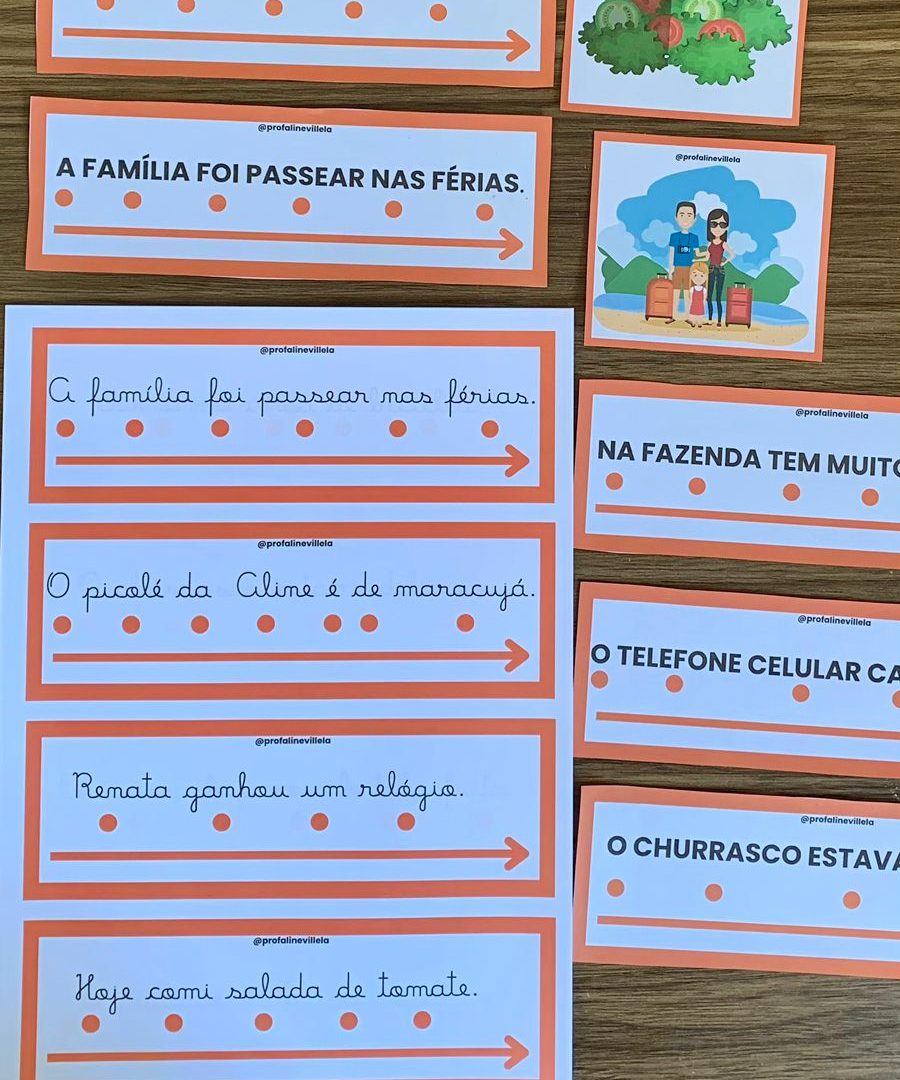 @profalinevillela
A FAMÍLIA FOI PASSEAR NAS FÉRIAS.
@profalinevillela
@profalinevillela
A família foi passear nas férias.
@profalinevillela
O picolé da Aline é de maracujá.
@profalinevillela
Renata ganhou um relógio.
@profalinevillela
Hoje comi salada de tomate.
@profalinevillela
NA FAZENDA TEM MUITO
@profalinevillela
O TELEFONE CELULAR CA
@profalinevillela
O CHURRASCO ESTAVA